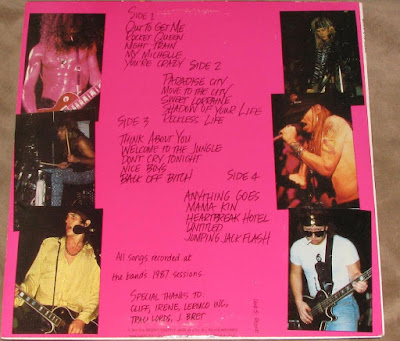 SIDE 1
OUT TO GET ME
ROCKET QUEEN
NIGHT TRAIN
MY MICHELLE
YOU'RE CRAZY
SIDE 2
PARADISE CITY
MOVE TO THE CITY
SWEET LORRAINE
SHADOW OF YOUR LIFE
RECKLESS LIFE
SIDE 3
THINK ABOUT YOU
WELCOME TO THE JUNGLE
DON'T CRY TONIGHT
NICE BOYS
BACK OFF BITCH
SIDE 4
ANYTHING GOES
MAMA KIN
HEARTBREAK HOTEL
UNTITLED
JUMPING JACK FLASH
All songs recorded at
the bands 1987 sessions
SPECIAL THANKS TO:
CLIFF, IRENE, INC,
LORDS, J. BRET